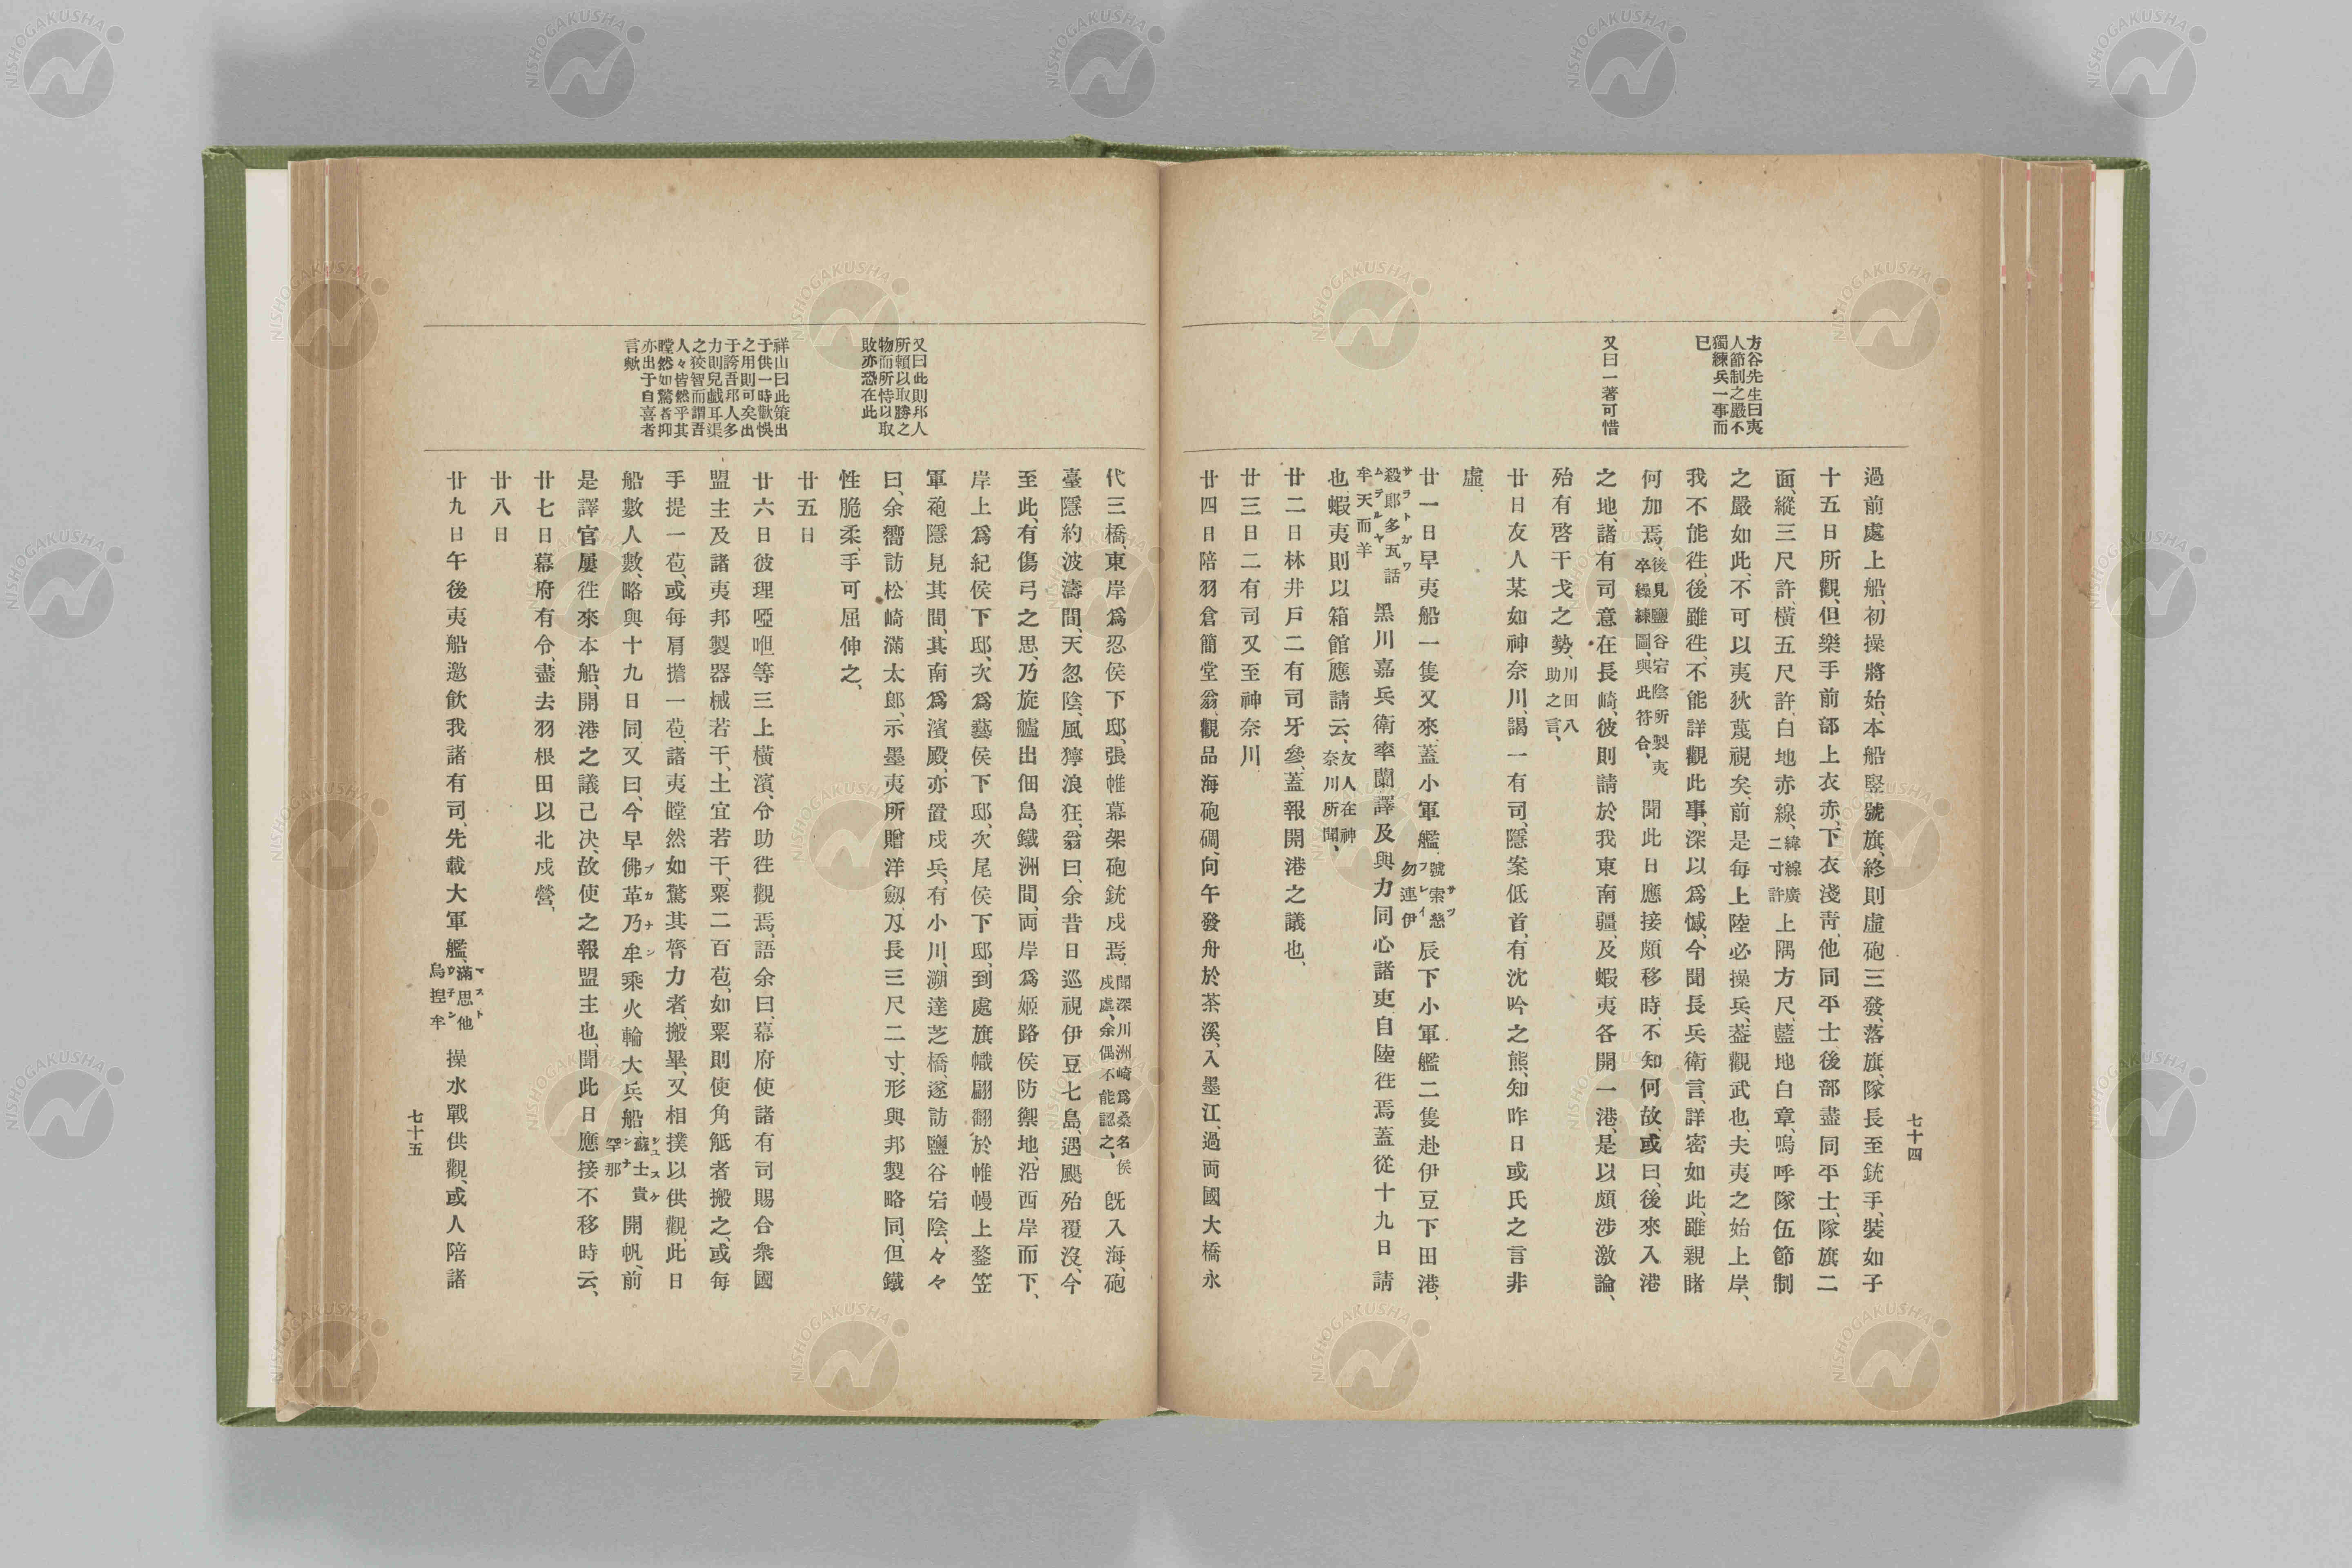 方谷先生曰夷
人節制之嚴不
獨練兵一事而
已
又曰一著可惜
過前處上船、初操將始、本船竪號旗、終則虛砲三發、落旗、隊長至銃手、裝如子
十五日所觀、但樂手前部上衣赤、下衣淺靑、他同平士、後部盡同平士、隊旗二
面、縱三尺許、橫五尺許、白地赤線、緯線廣二寸許上隅方尺、藍地白章、嗚呼隊伍節制
之嚴如此、不可以夷狄蔑視矣、前是每上陸必操兵、蓋觀武也、夫夷之始上岸、
我不能往、後雖往、不能詳觀此事、深以爲憾、今聞長兵衛言、詳密如此、雖親睹
何加焉、後見鹽谷宕陰所製夷卒繰練圖、與此符合、聞此日應接頗移時、不知何故、或曰、後來入港
之地、諸有司意在長崎、彼則請於我東南疆、及蝦夷各開一港、是以頗涉激論、
殆有啓干戈之勢、川田八助之言、
廿日友人某如神奈川、謁一有司、隱案低首、有沈吟之熊、知昨日或氏之言非
虛、
廿一日早夷船一隻又來、蓋小軍艦、號索慈勿連伊辰下小軍艦二隻赴伊豆下田港、
殺郞多瓦話牟天而羊黑川嘉兵衛率蘭譯及與力同心諸吏、自陸往焉蓋從十九日請
也、蝦夷則以箱館應請云、友人在神奈川所聞、
廿二日林井戶二有司牙參、蓋報開港之議也、
廿三日二有司又至神奈川
廿四日陪羽倉簡堂翁、觀品海砲碉、向午發舟於茶溪、入墨江、過兩國大橋永
七十四
又曰此則邦人
所賴以取勝之
物而所恃以取
敗亦恐在此
祥山曰此策出
于供一時歡悞
之用則可矣出
于誇吾邦人多
力則兒戲耳渠
之狡智而謂吾
人々皆然乎其
瞠然如驚者抑
亦出于自喜者
言歟
代三橋、東岸爲忍侯下邸、張帷幕架砲銃戍焉、聞深川洲崎爲桑名侯戍處、余偶不能認之、旣入海、砲
臺隱約波濤間、天忽陰、風獰浪狂、翁曰、余昔日巡視伊豆七島、遇颶殆覆沒、今
至此、有傷弓之思、乃旋艫出佃島鐵洲間、兩岸爲姬路侯防禦地、沿西岸而下、
岸上爲紀侯下邸、次爲藝侯下邸、次尾侯下邸、到處旗幟翩翻於帷幔上鍪笠
軍袍隱見其間、其南爲濱殿、亦置戍兵、有小川、溯達芝橋、遂訪鹽谷宕陰、々々
曰、余嚮訪松崎滿太郞、示墨夷所贈洋劔、刄長三尺二寸、形與邦製略同、但鐵
性脆柔、手可屈伸之、
廿五日
廿六日彼理啞咀等三上橫濱、令助往觀焉、語余曰、幕府使諸有司賜合衆國
盟主及諸夷邦製器械若干、土宜若干、粟二百苞、如粟則使角觝者搬之、或每
手提一苞、或每肩擔一苞、諸夷瞠然如驚其膂力者、搬畢、又相撲以供觀、此日
船數人數、略與十九日同、又曰、今早佛革乃牟乘火輪大兵船、蘇士貴罕那開帆、前
是譯官屢往來本船、開港之議已决、故使之報盟主也、聞此日應接不移時云、
廿七日幕府有令、盡去羽根田以北戍營、
廿八日
廿九日午後夷船邀飮我諸有司、先載大軍艦、滿思他烏捏牟操水戰供觀、或人陪諸
七十五